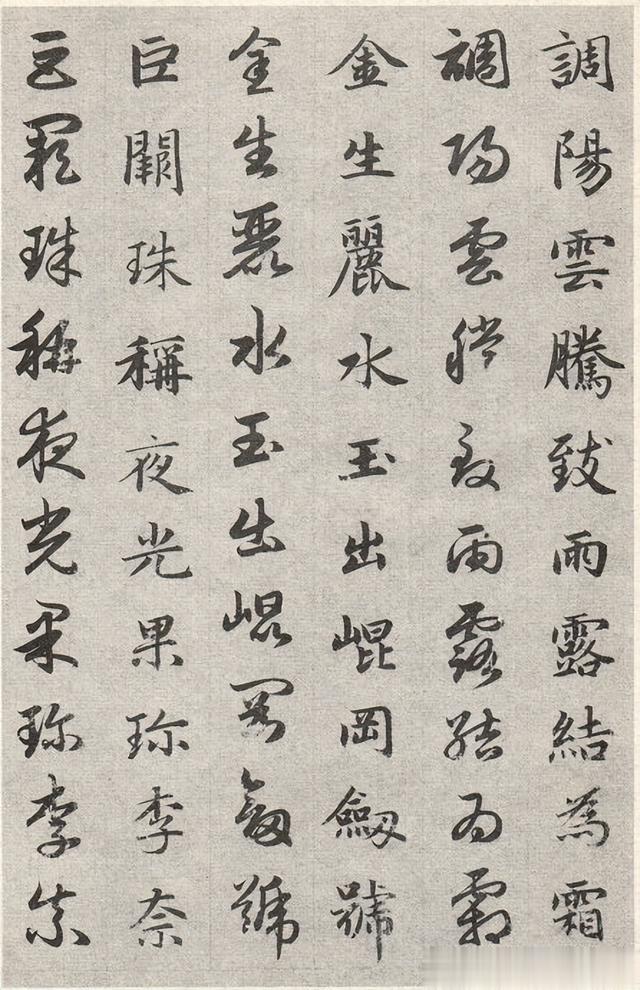 調陽雲騰致雨露結為霜
調陽雲騰致雨露結為霜
金生麗水玉出崐岡劒號
金生麗水玉出崐岡劒號
巨闕珠稱夜光果珎李奈
巨闕珠稱夜光果珎李奈